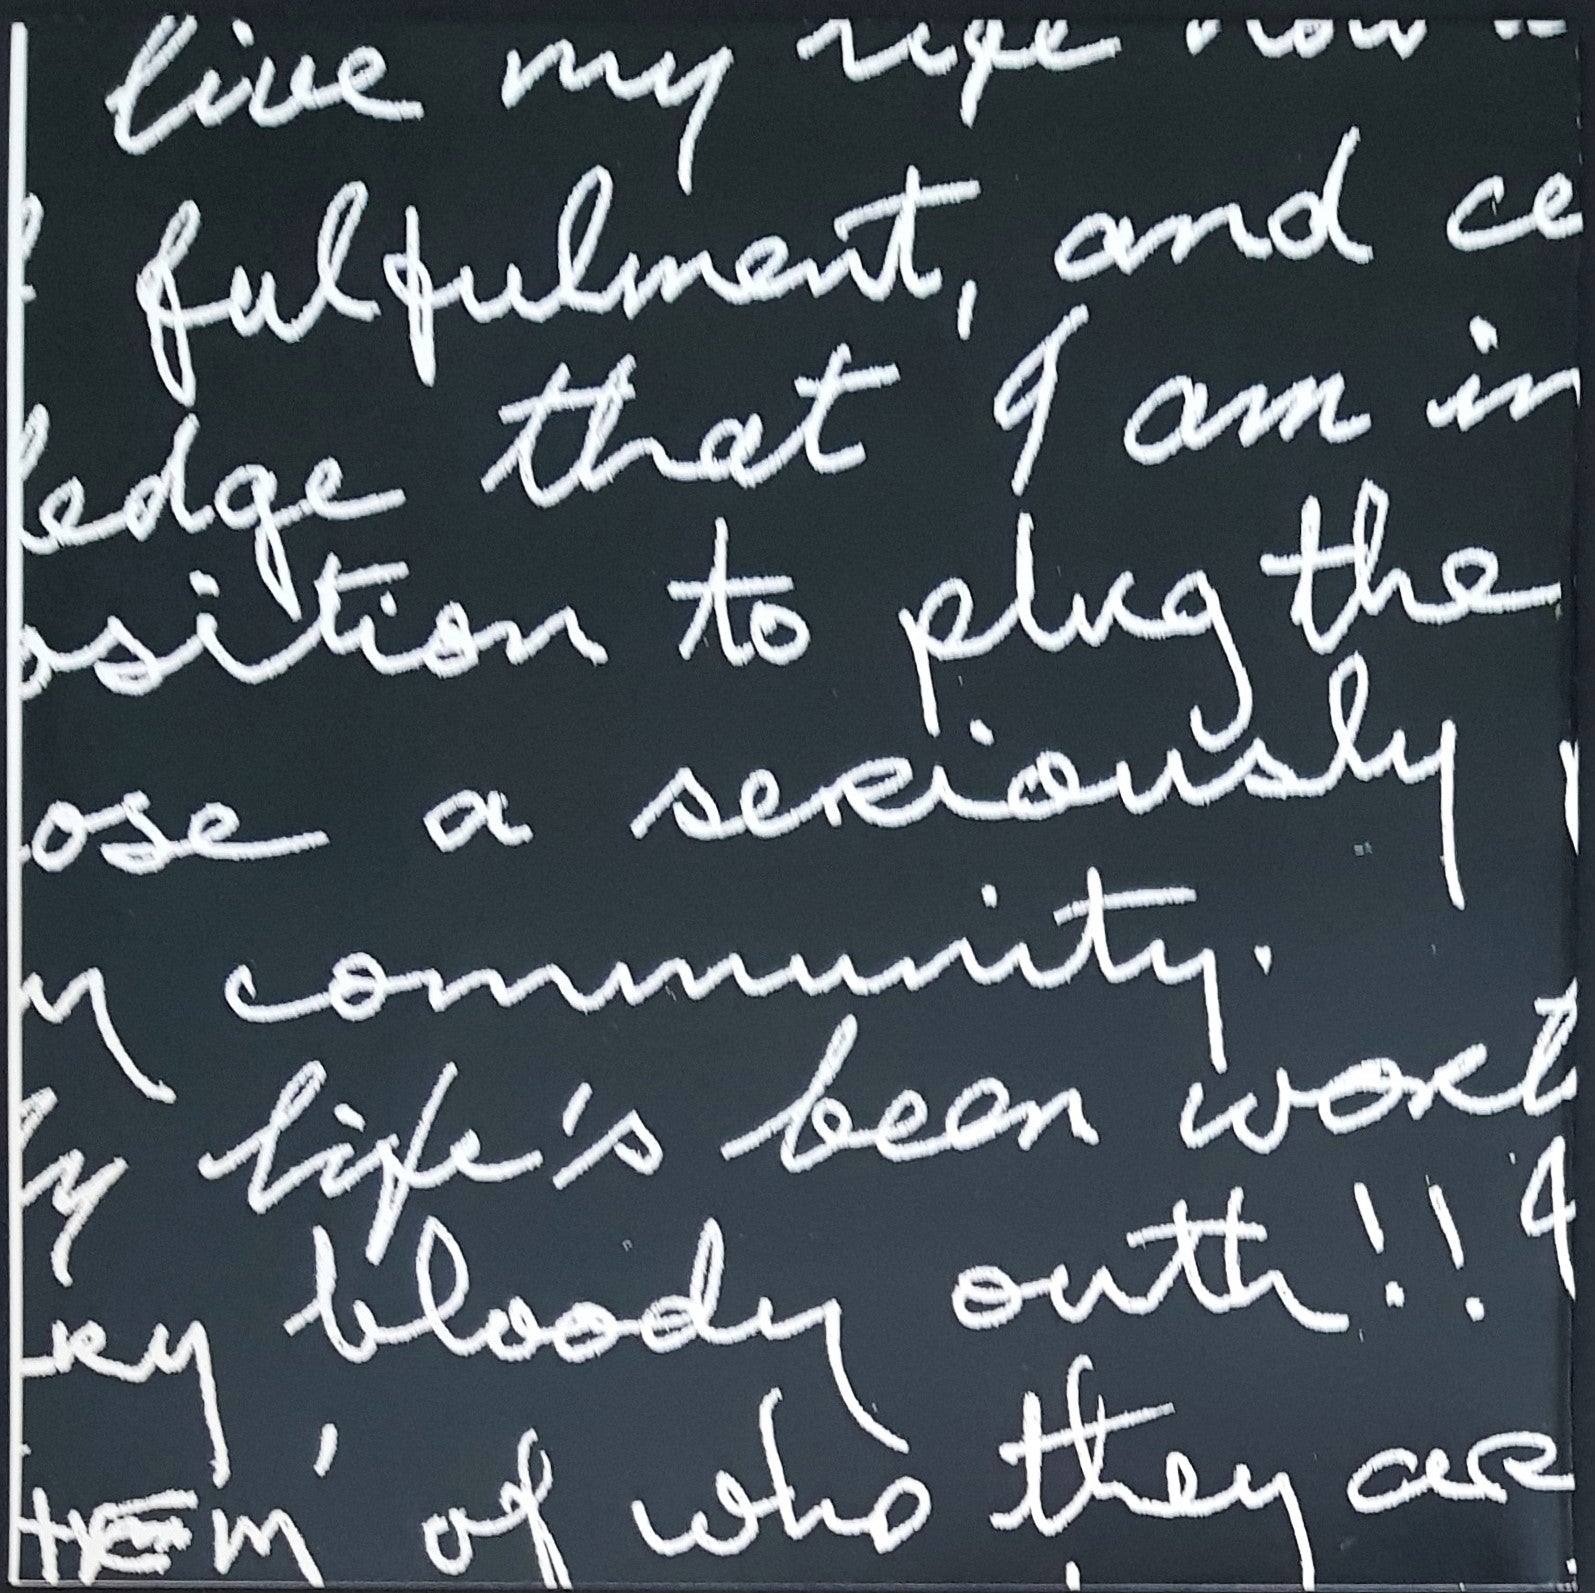 live my life now
fulfulment, and ce
ledge that I am in
osition to plug the
ose a seriously
y community.
life's been wort
bloody outh!!
THEM' of who they are